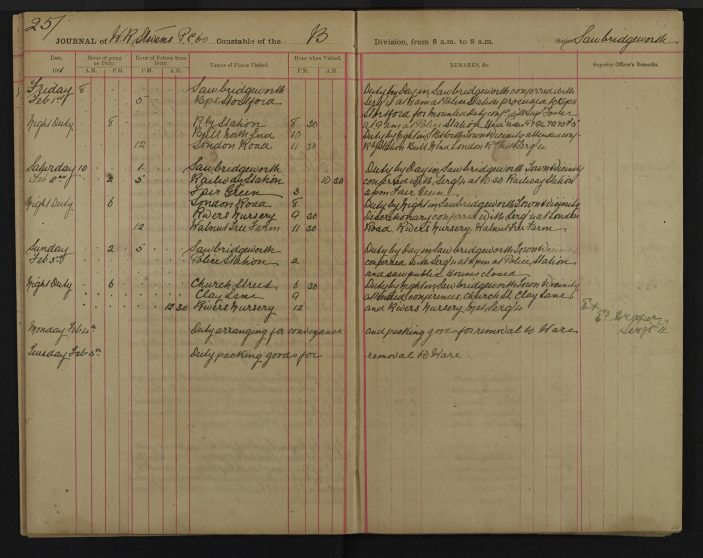 251
JOURNAL of W.R. Stevens P.C. 60 Constable of the B Division, from 8 a.m. to 8 a.m. Station Sawbridgeworth
Date. Hour of going on Duty. Hour of Return from Duty. Names of Places Visited. Hour when Visited. REMARKS, &c. Superior Officer's Remarks.
A.M. P.M. A.M. P.M. P.M. A.M.
Friday 8 Sawbridgeworth Duty by Day in Sawbridgeworth conferred with
Feb 1st 5 Bps Stortford Serg't at 8 am at Police Station proceeded to Bps
Stortford for mounted duty
Night Duty 8 Rly Station 8 30 at 9 am at Police Station
Bell North End 10 Duty by Night in Town & Vicinity attended conf
12 London Road 11 30 Rly Station Bell N. End London Rd
Saturday 10 1 Sawbridgeworth Duty by Day in Sawbridgeworth Town & Vicinity
Feb 2nd 2 5 Railway Station 10 30 conferred with Serg't at 10.30 Railway Station
Fair Green 3 Fair Green
Night Duty 6 London Road 8 Duty by Night in Sawbridgeworth Town & Vicinity
Rivers Nursery 9 30 Discretionary conferred with Serg't at London
12 Walnut Tree Farm 11 30 Road, Rivers Nursery, Walnut Tree Farm
Sunday 2 5 Sawbridgeworth Duty by Day in Sawbridgeworth Town & Vicinity
Feb 3rd Police Station 2 conferred with Serg't at 2 pm at Police Station
and saw public Houses closed
Night Duty 6 Church Street 6 30 Duty by Night in Sawbridgeworth Town & Vicinity
Clay Lane 9 attended conferences, Church St, Clay Lane
12 30 Rivers Nursery 12 and Rivers Nursery Met Serg't
Ex
Monday Feb 4th Duty arranging for conveyance and packing goods for removal to Ware
Tuesday Feb 5th Duty packing goods for removal to Ware